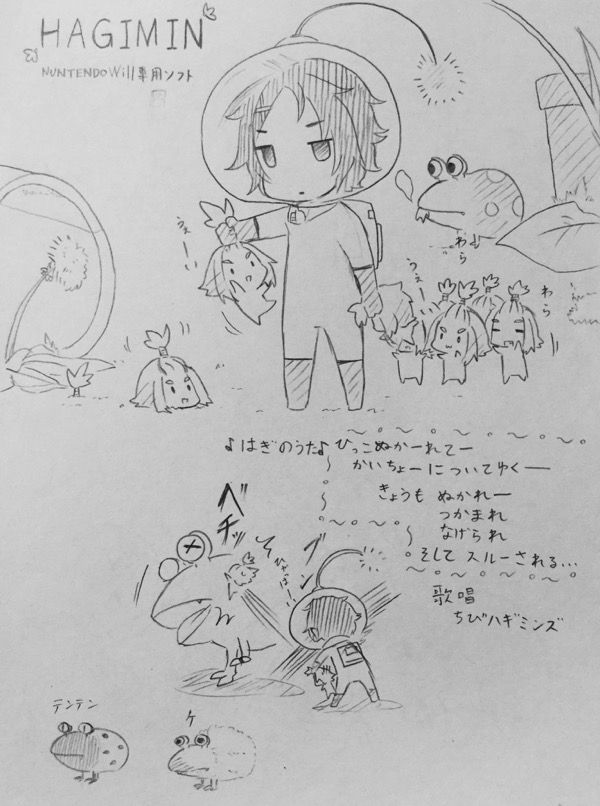 HAGIMIN
NUNTENDO Will専用ソフト
うぇーい
わら
うぇーい
わら
♪はぎのうた♪
ひっこぬかーれてー
かいちょーについてゆくー
きょうも ぬかれー
つかまれ
なげられ
そして スルーされる…
歌唱
ちびハギミンズ
ベチッ
ひゃっほーい
ブン
テンテン
ケ